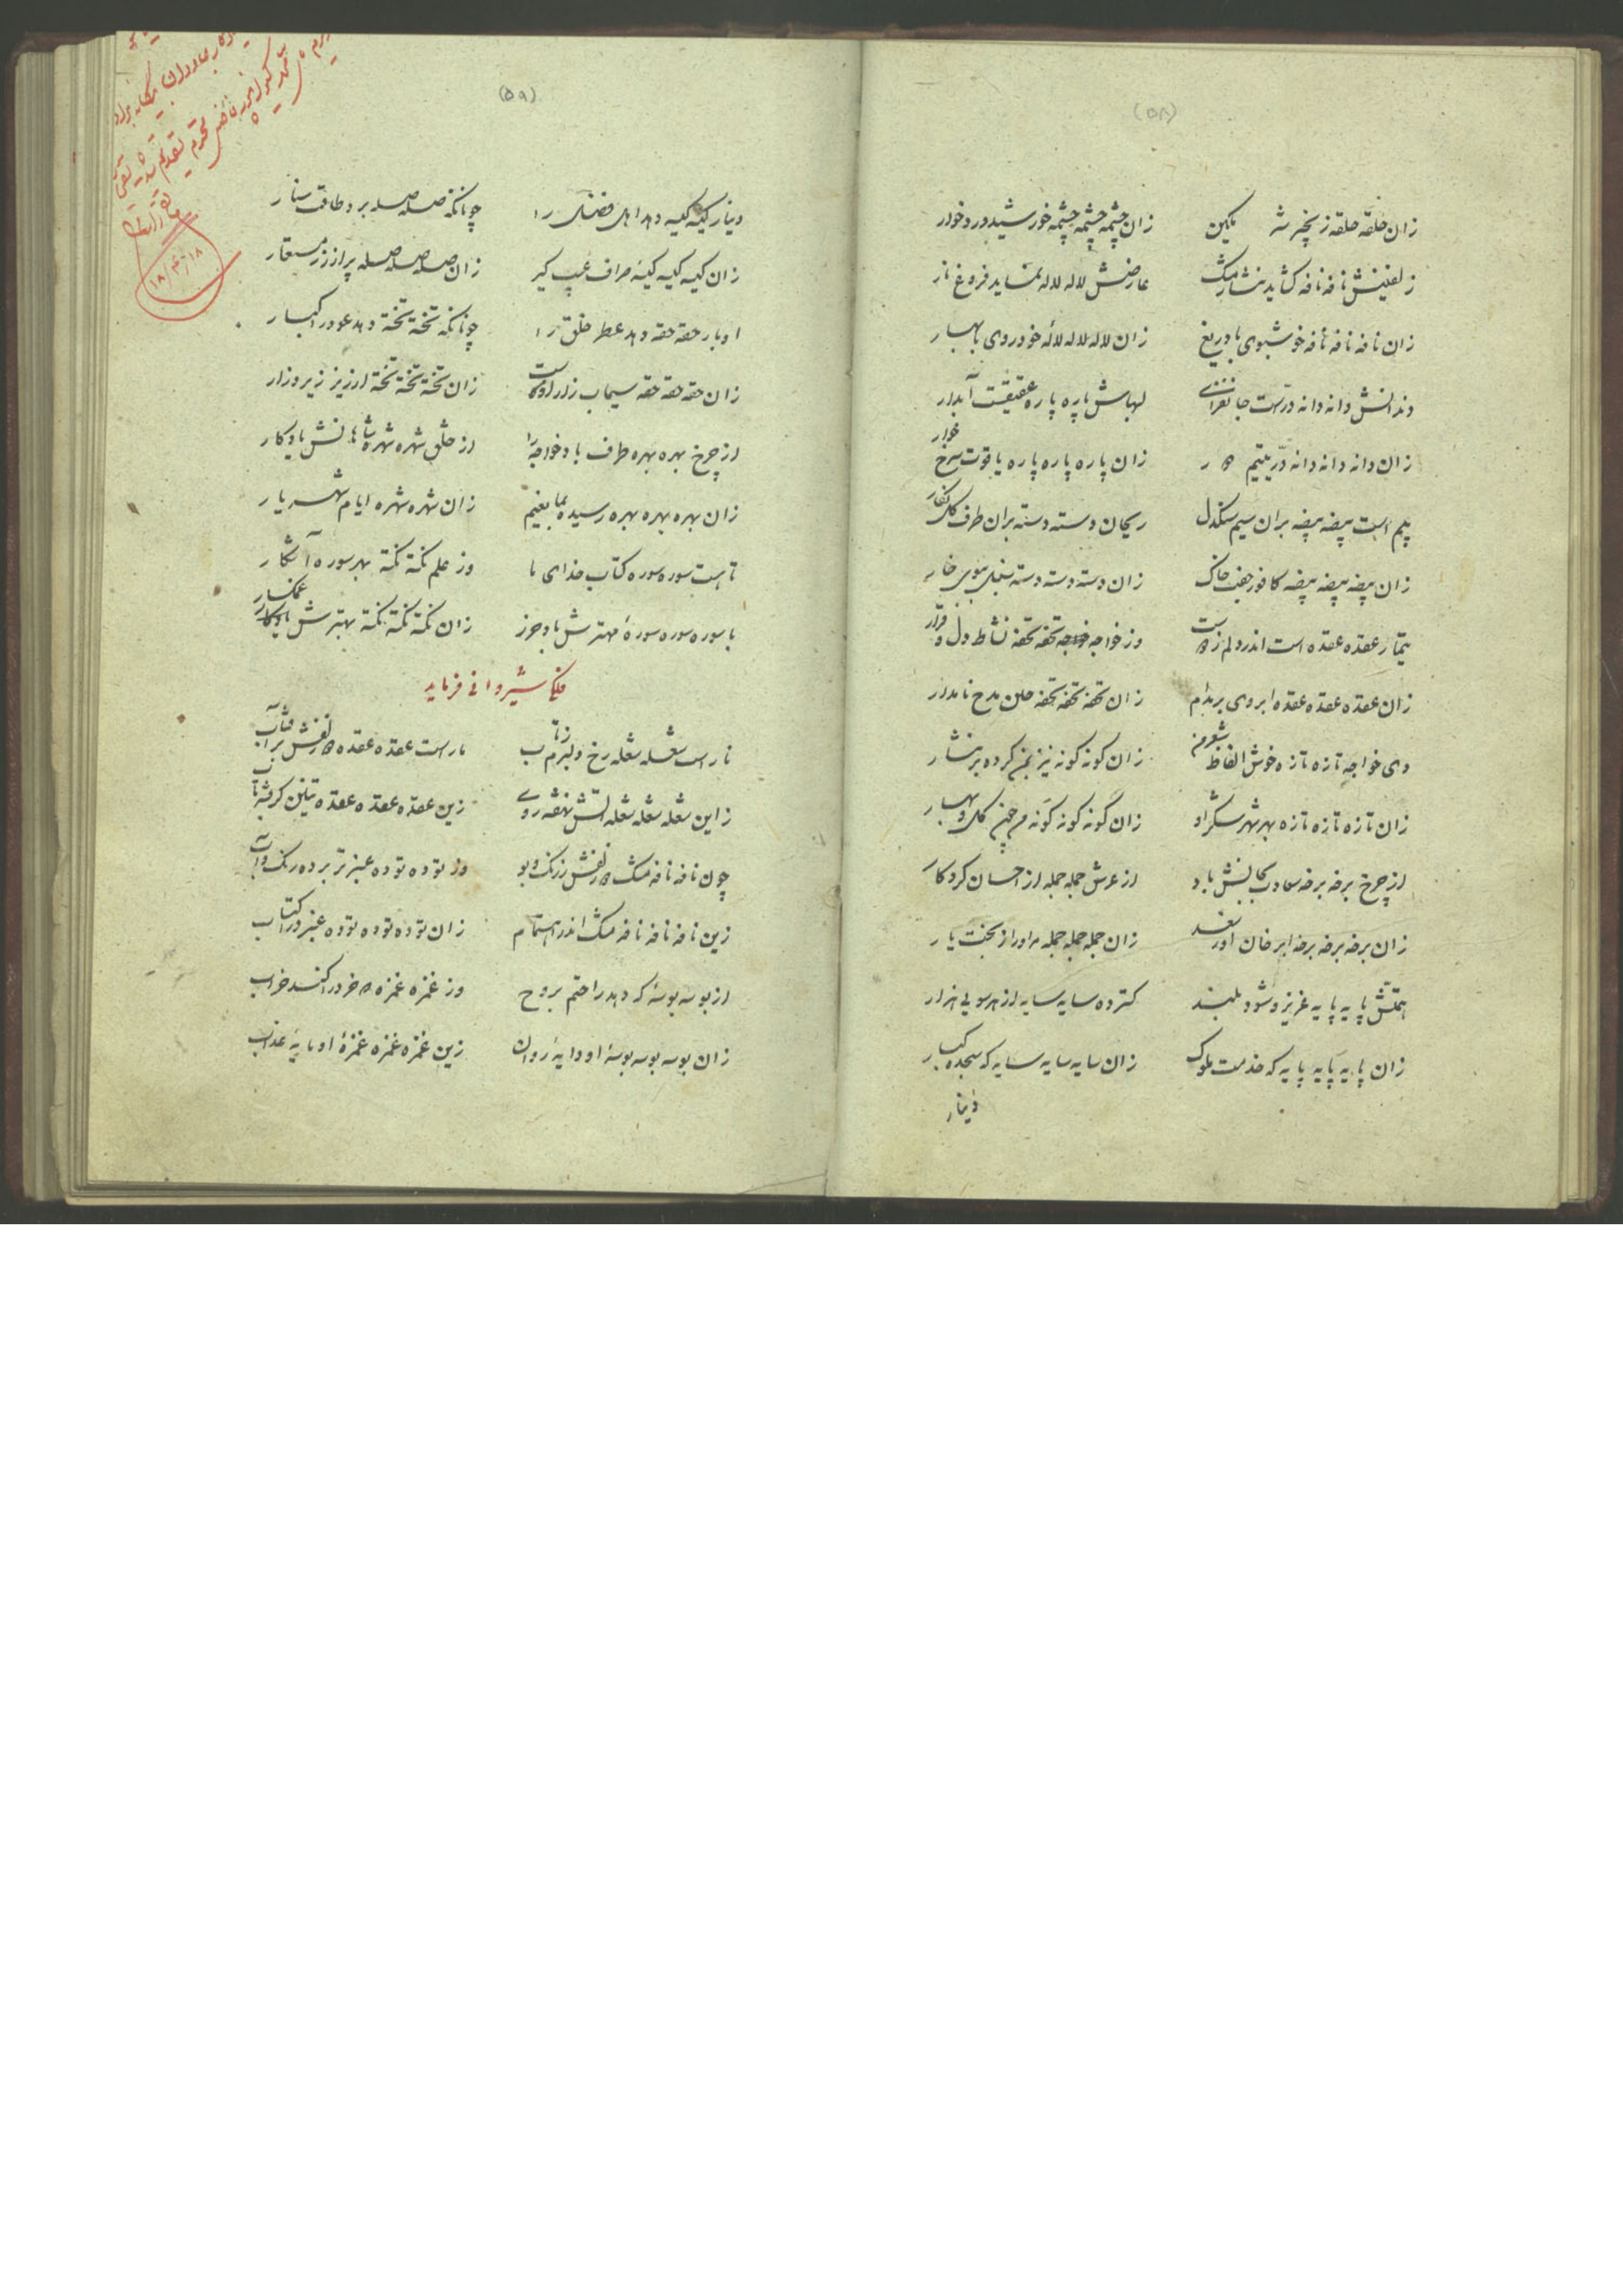 (۵۸)
زان حلقه حلقه حلقه زنجیر شه نگین زان چشمه چشمه چشمه خورشید ور و خوار
زلفینش نافه نافه کشاید نثار مشک عارضش لاله لاله نماید فروغ نار
زان نافه نافه نافه خوشبوی با دریغ زان لاله لاله لالهٔ خودروی با بهار
دندانش دانه دانه درست جانفزای لبهاش پاره پاره عقیقست آبدار
زان دانه دانه دانه درّ یتیم زان پاره پاره پاره یاقوت سرخ خوار
سیم است بیضه بیضه بران سیم سنگدل ریحان دسته دسته بران طرف گل نگار
زان بیضه بیضه بیضه کافور جفت خاک زان دسته دسته دسته سنبل ببوی خار
تیمار عقده عقده است اندر دلم وز خواجه تحفه تحفه نشاط دل و قرار
زان عقده عقده عقده ابروی بریدام زان تحفه تحفه تحفه من مدح نامدار
دی خواجه تازه تازه خوش الفاظ شعر من زان گونه گونه نیز بمن کرده بر نثار
زان تازه تازه تازه بهر شهر شکر او زان گونه گونه گونه هر چمن گل و بهار
از چرخ برخه برخه سعادت بجانش باد از عرش جمله جمله از احسان کردکار
زان برخه برخه برخه ابر خان او جمله زان جمله جمله جمله مر او را ز بخت یار
همتش پایه پایه عزیز و شود بلند کسترده سایه سایه از هر سویی هزار
زان پایه پایه پایه که خدمت ملوک زان سایه سایه سایه که سجده کبار
دینار
(۵۹)
دینار کیسه کیسه دهد اهل فضل را چونانکه صله صله برد طاقت
زان کیسه کیسه کیسهٔ صراف عیب گیر زان صله صله صله پر از زر
او بار حقه حقه دهد عطر خلق را چونانکه تخته تخته دهد عود در
زان حقه حقه حقه سیماب زان تخته تخته تخته ارزیز زیر و زار
از چرخ بهره بهره طرف باد خواجه را از خلق شهره شهره ثناهانش یادکار
زان بهره بهره بهره رسیده بما نعیم زان شهره شهره شهره ایام شهریار
تا هست سوره سوره کتاب خدای ما وز علم نکته نکته بهر سوره آشکار
با سوره سوره سورهٔ مهترش باد حرز زان نکته نکته نکته بهترش غمکسار
فلکی شیروانی فرماید
نار است شعله شعله رخ دلبرم ز تاب مار است عقده عقده زلفش بر آفتاب
زاین شعله شعله شعله آتش نهفته روی زین عقده عقده عقده تنین گرفته تاب
چون نافه نافه مشک زلفش ز رنگ و بو وز توده توده عنبر تر برده رنگ و آب
زین نافه نافه نافه مشک اندر اهتمام زان توده توده توده عنبر در اکتساب
از بوسه بوسهٔ که دهد راحتم بروح وز غمزه غمزه خرد را کند خراب
زان بوسه بوسه بوسهٔ او دایهٔ روان زین غمزه غمزه غمزهٔ او مایهٔ عذاب
۱۸/۳/۱۸